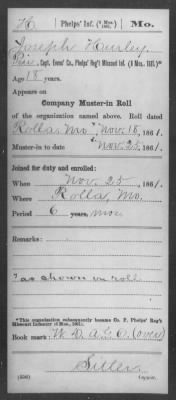 H | Phelps' Inf. (6 Mos., 1861.) | Mo.
Joseph Hurley
Priv., Capt. Evens' Co., Phelps' Reg't Missouri Inf. (6 Mos., 1861.)*
Age 18 years.
Appears on
Company Muster-in Roll
of the organization named above. Roll dated
Rolla, Mo., Nov. 18, 1861.
Muster-in to date Nov. 25, 1861.
Joined for duty and enrolled:
When Nov. 25, 1861.
Where Rolla, Mo.
Period 6 mos.
Remarks:
"as shown on roll
*This organization subsequently became Co. F, Phelps' Reg't
Missouri Infantry (6 Mos., 1861).
Book mark: (over)
Copyist.